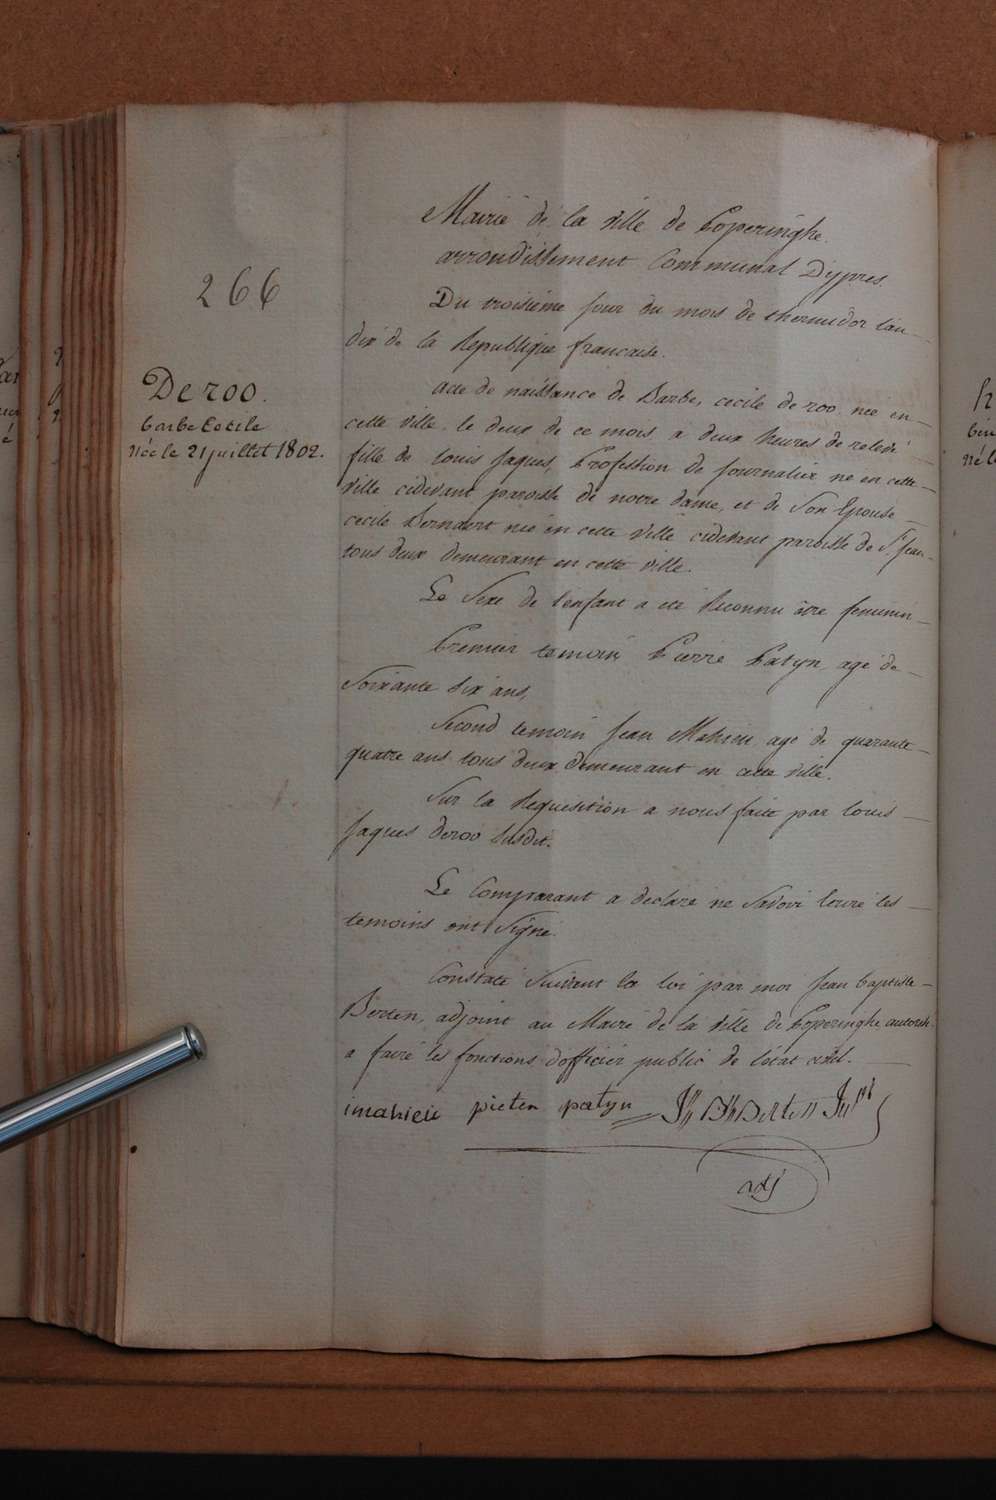 266
De roo.
barbe Cecile
née le 21 juillet 1802.
Mairie de la ville de Poperinghe.
arrondissement Communal D'ypres.
Du troisieme jour du mois de thermidor l'an
dix de la Republique francaise.
acte de naissance de Barbe, cecile de roo, née en
cette ville, le deux de ce mois a deux heures de relevé
fille de louis Jaques, Profession de journalier né en cette
ville cidevant paroisse de notre dame, et de Son Epouse
cecile Bernaert née en cette ville cidevant paroisse de St. jean
tous deux demeurant en cette ville.
Le Sexe de l'enfant a été Reconnu être feminin
Premier temoin Pierre Patyn agé de
Soixante six ans,
Second temoin Jean Mahieu agé de quarante
quatre ans tous deux demeurant en cette ville.
Sur la Requisition a nous faite par louis
Jaques deroo susdit.
Le Comparant a declaré ne Savoir les
temoins ont Signé.
Constaté Suivant la loi par moi Jean baptiste
Berten, adjoint au Maire de la ville de Poperinghe autorisé
a faire les fonctions d'officier public de l'état civil.
imahieu pieter patyn Berten
adj